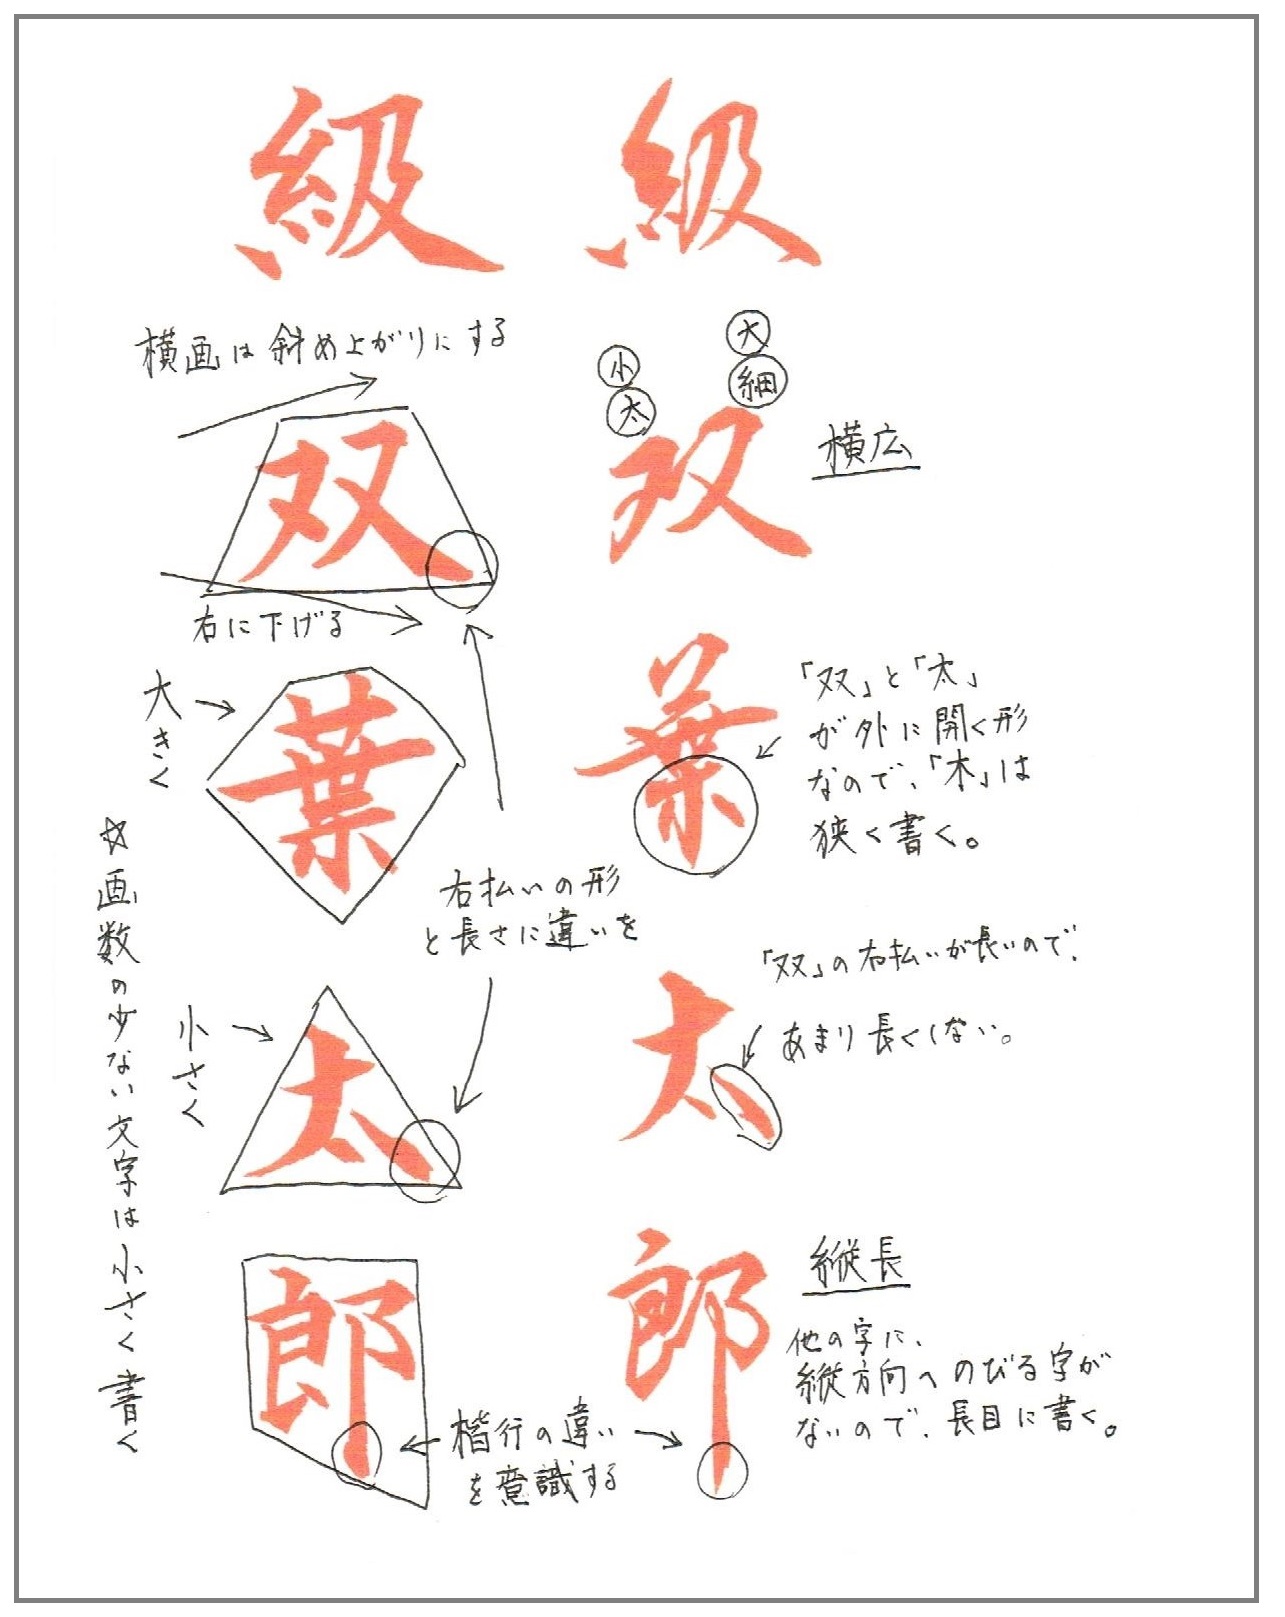 級 級
横画は斜め上がりにする
小
太
大
細
双 双
横広
右に下げる
大きく
葉 葉
「双」と「太」
が外に開く形
なので、「木」は
狭く書く。
☆画数の少ない文字は小さく書く
右払いの形
と長さに違いを
小さく
太 太
「双」の右払いが長いので、
あまり長くしない。
郎 郎
縦長
他の字に、
縦方向へのびる字が
ないので、長目に書く。
楷行の違い
を意識する